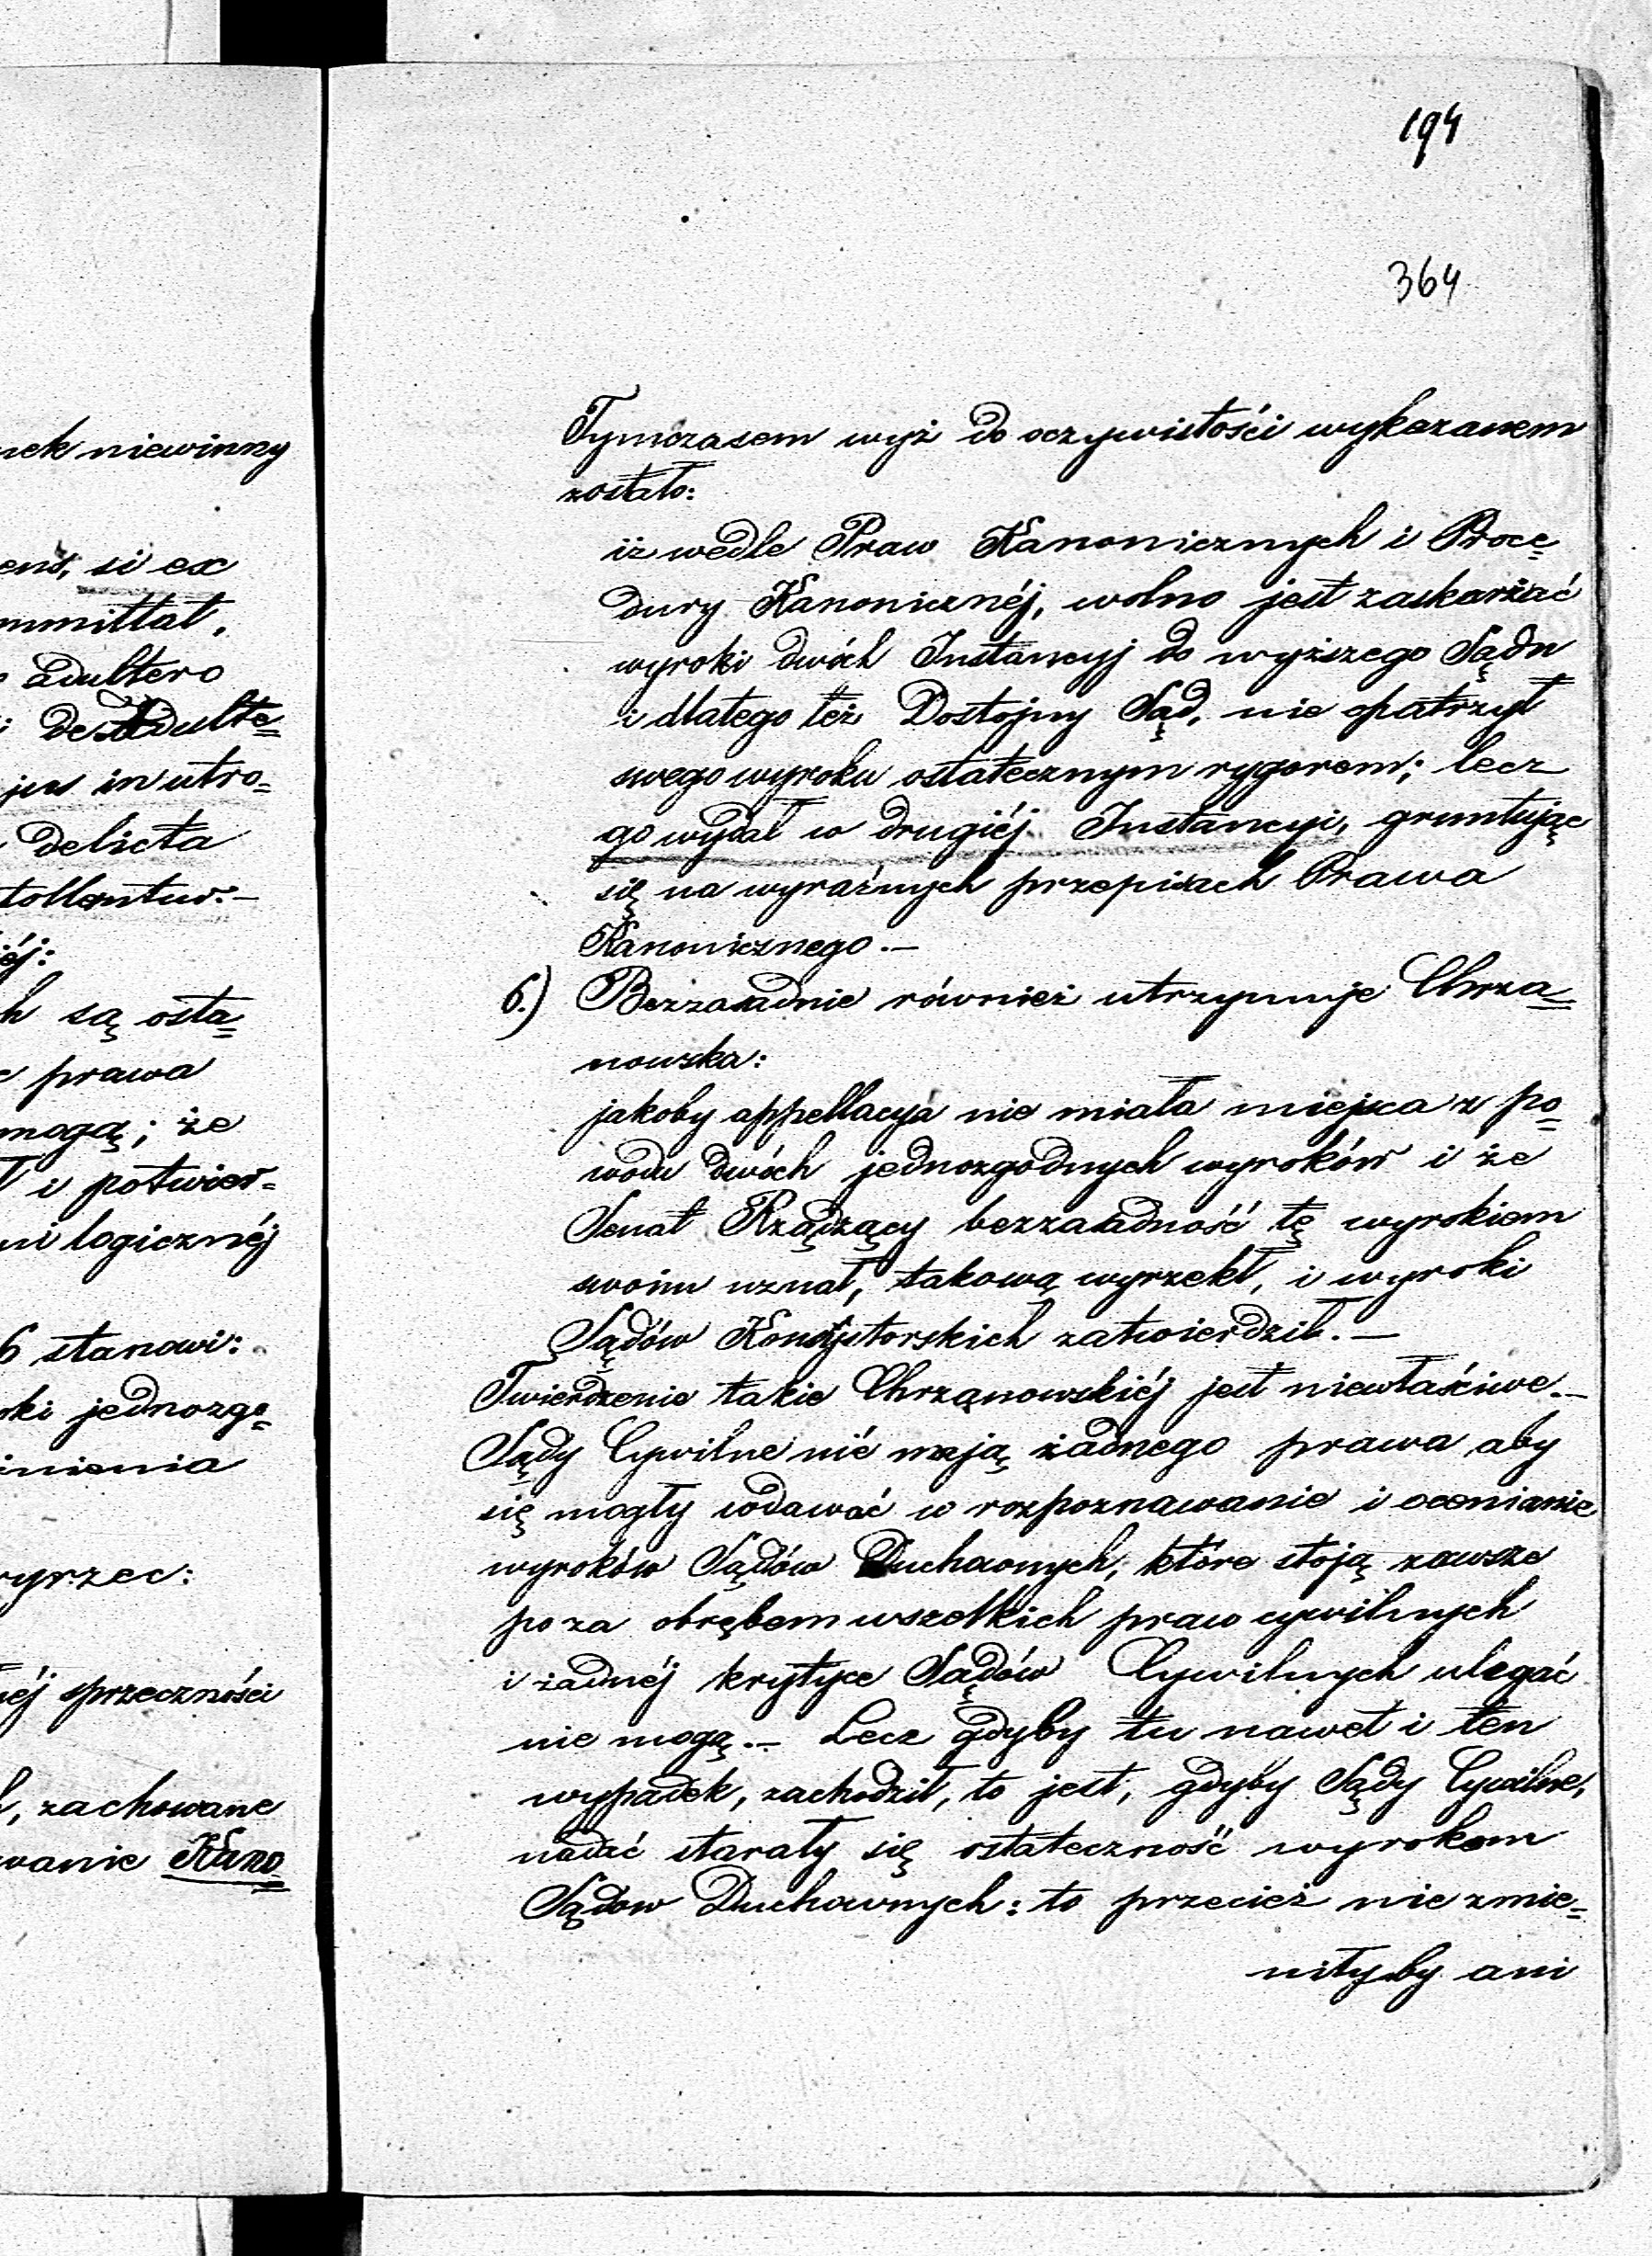 nek niewinny
si ex
mmittat,
adultero
de Adulte=
jus in utro=
delicta
tollentur.—
éj:
h są osta=
prawa
mogą; że
i potwier=
ni logicznéj
6 stanowi:
ki jednozgo=
inienia
wyrzec:
éj sprzeczności
, zachowane
wanie Kano=
194
364
Tymczasem wyż do oczywistości wykazanem
zostało:
iż wedle Praw Kanonicznych i Proce=
dury Kanonicznéj, wolno jest zaskarżać
wyroki dwóch Instancyj do wyższego Sądu
i dlatego też Dostojny Sąd, nie opatrzył
swego wyroku ostatecznym rygorem; lecz
go wydał w drugiéj Instancyi, gruntując
się na wyraźnych przepisach Prawa
Kanonicznego.—
6.) Bezzasadnie również utrzymuje Chrza=
nowska:
jakoby appellacya nie miała miejsca z po=
wodu dwóch jednozgodnych wyroków i że
Senat Rządzący bezzasadność tę wyrokiem
swoim uznał, takową wyrzekł, i wyroki
Sądów Konsystorskich zatwierdził.—
Twierdzenie takie Chrzanowskiéj jest niewłaściwe.—
Sądy Cywilne nie mają żadnego prawa aby
się mogły wdawać w rozpoznawanie i ocenianie
wyroków Sądów Duchownych, które stoją zawsze
po za obrębem wszelkich praw cywilnych
i żadnéj krytyce Sądów Cywilnych ulegać
nie mogą.— Lecz gdyby tu nawet i ten
wypadek, zachodził, to jest, gdyby Sądy Cywilne,
nadać starały się ostateczność wyrokom
Sądow Duchownych: to przecież nie zmie=
niłyby ani